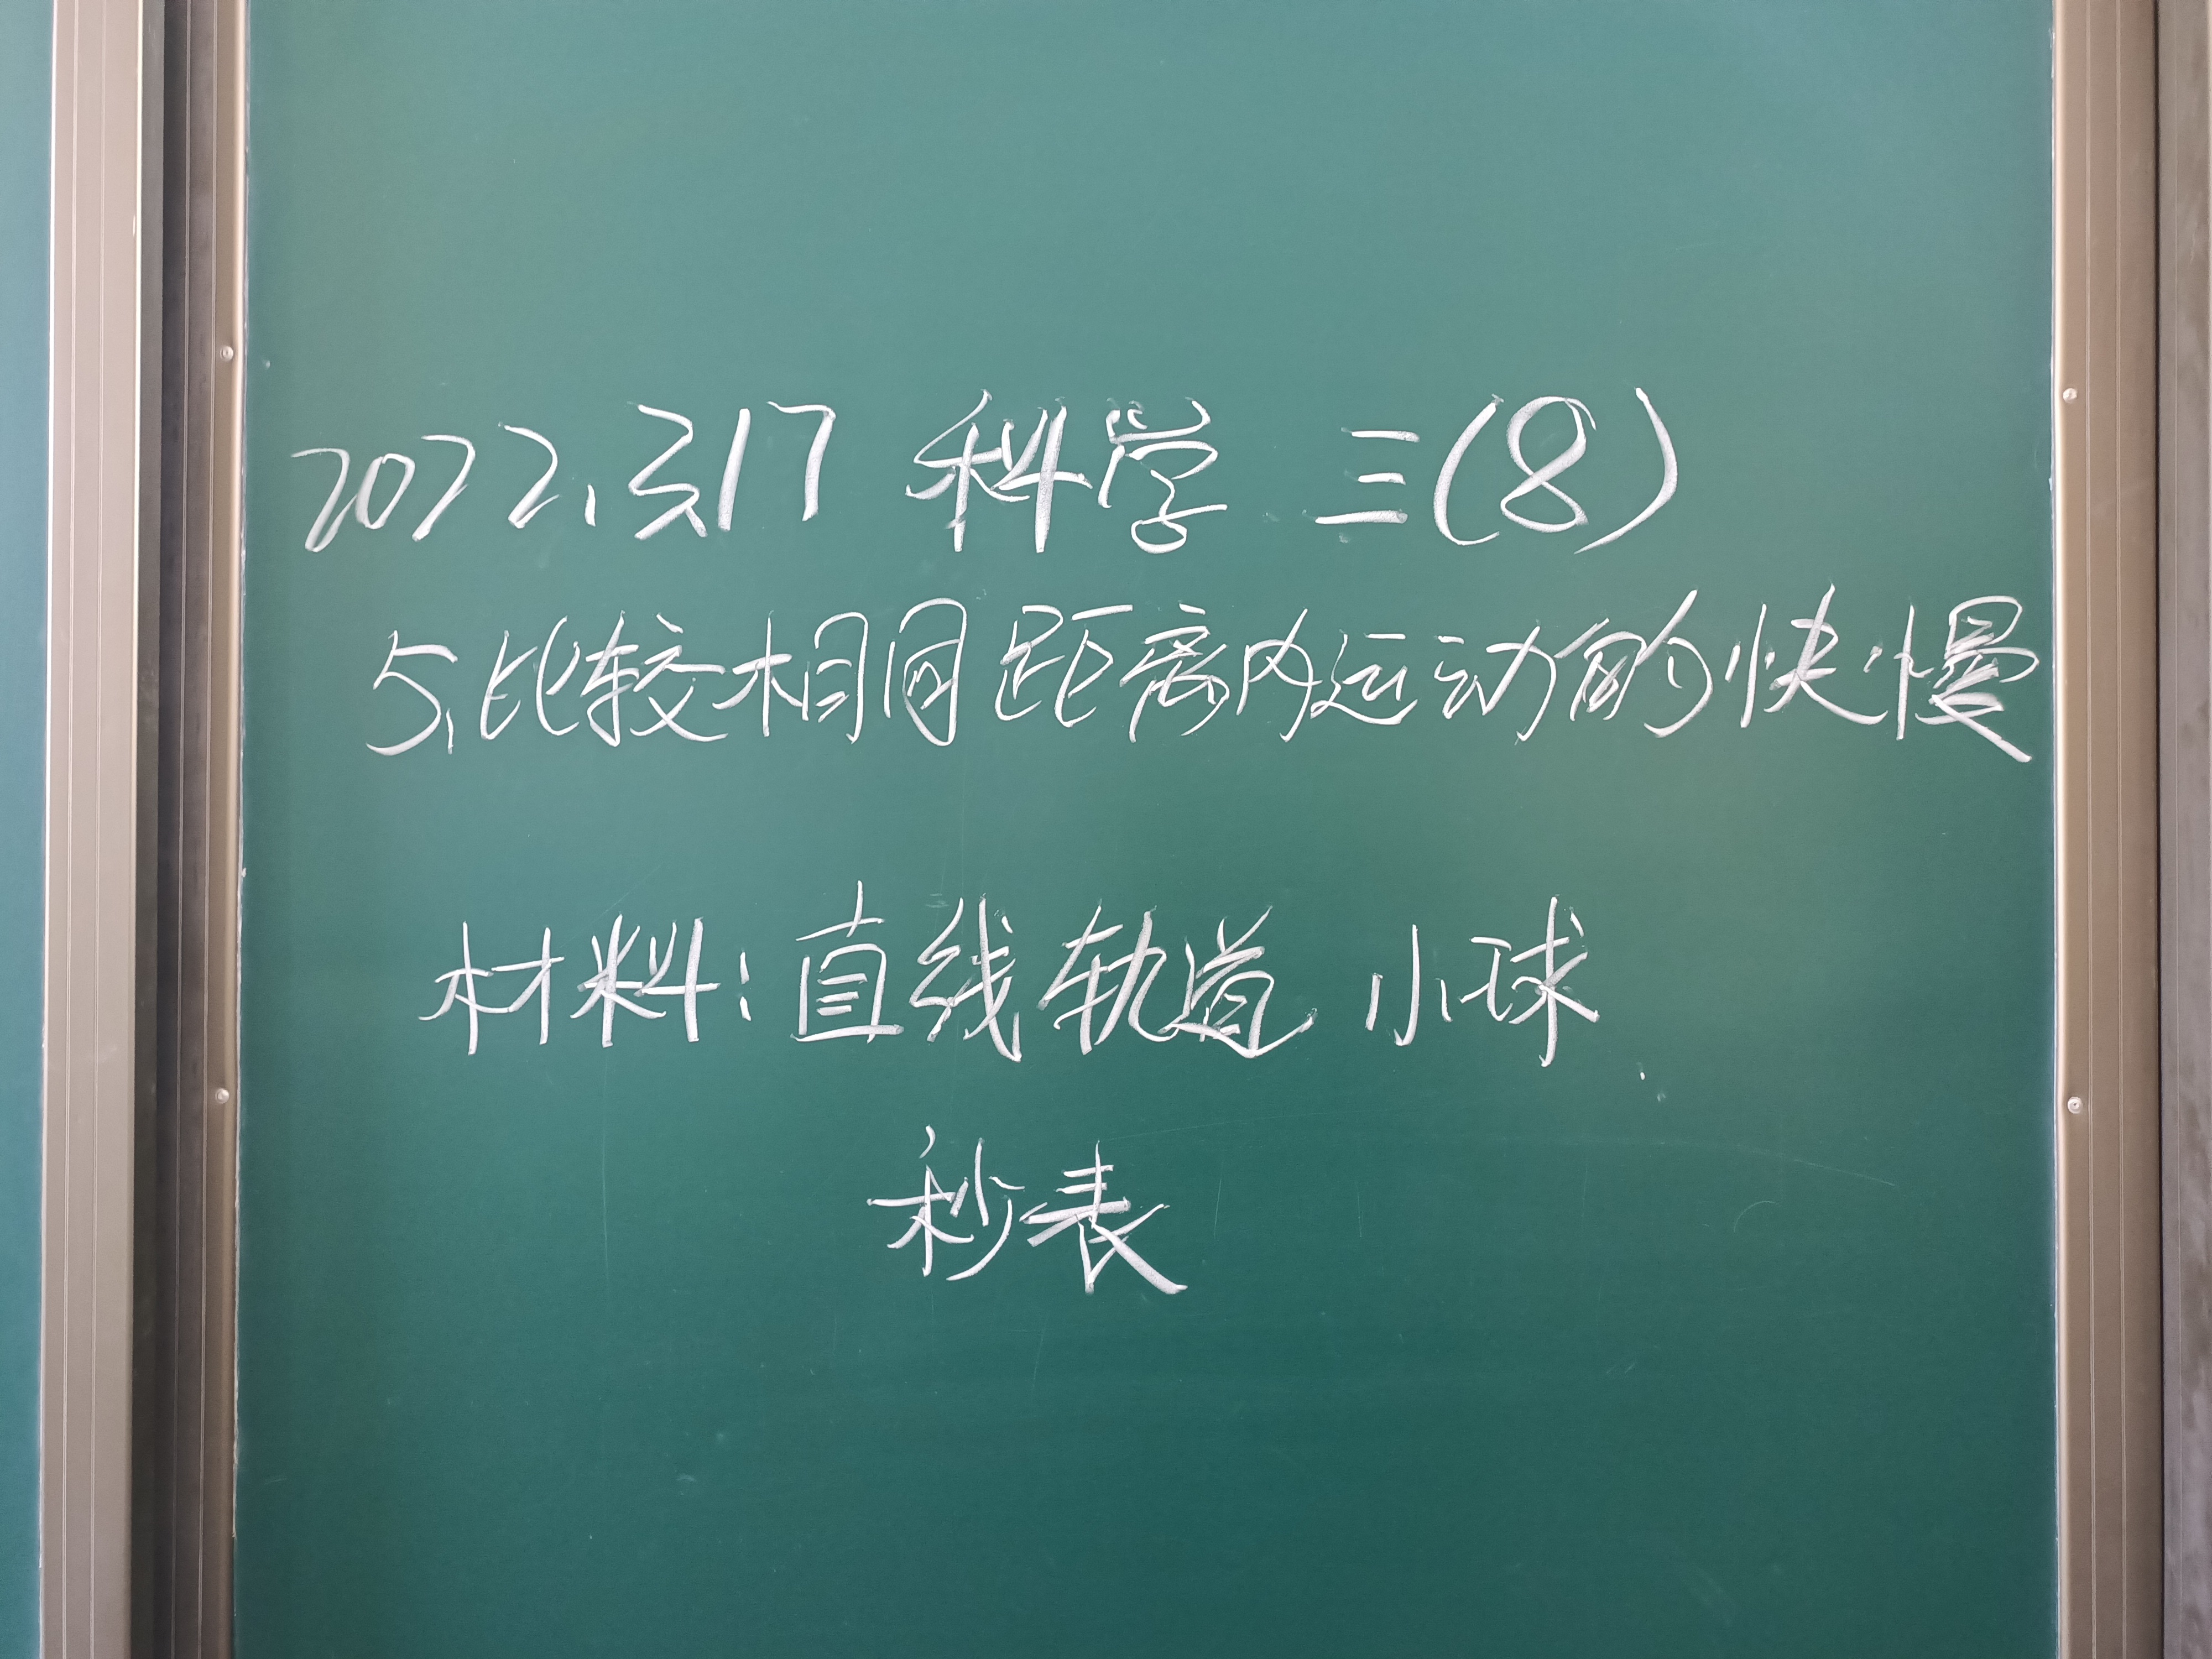 2022.3.17 科学 三(8)
5.比较相同距离内运动的快慢
材料:直线轨道 小球
秒表